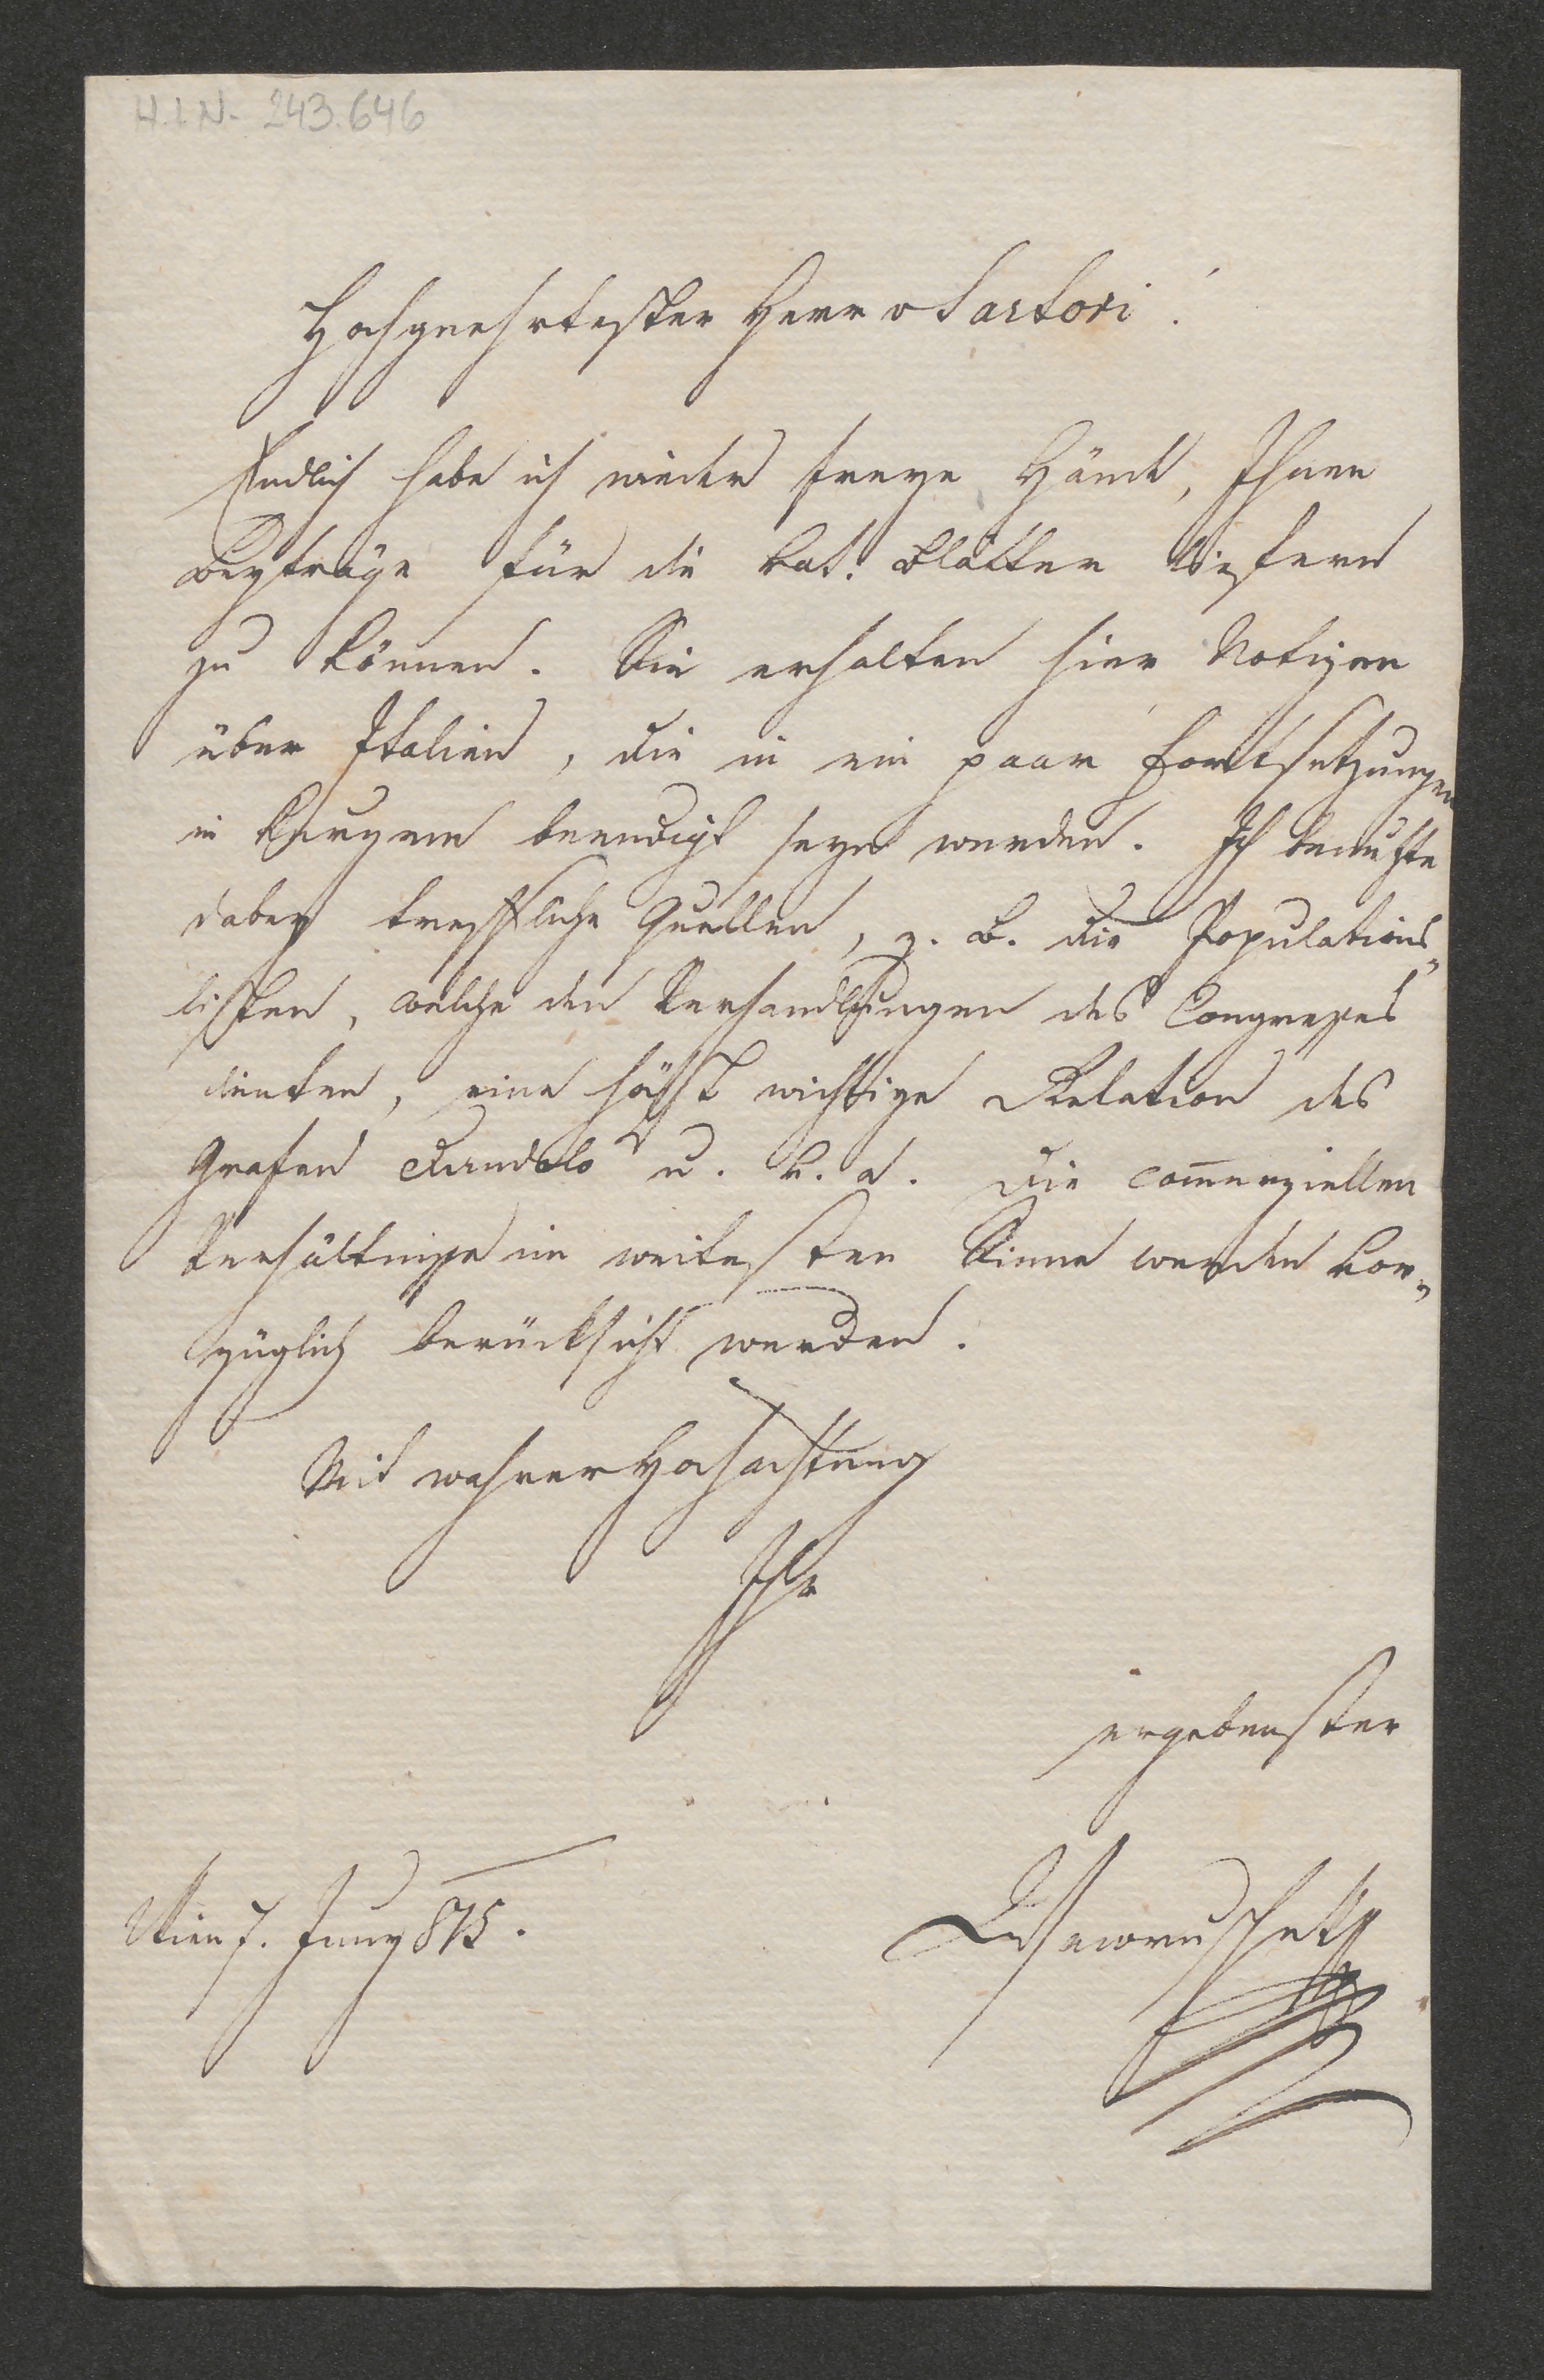 H.I.N. 243.646
Hochgeehrtester Herr v Sartori!
Endlich habe ich wieder freye Hände, Ihnen
Beyträge für die vat. Blätter liefern
zu können. Sie erhalten hier Notizen
über Italien, die in ein paar Fortsetzungen
in Kurzem beendigt seyn werden. Ich benutzte
dabey treffliche Quellen, z. B. die Populations-
listen, welche den Verhandlungen des Congreßes
dienten, eine höchst wichtige Relation des
Grafen Dandolo u. v. a. Die com̅erziellen
Verhältniße im weitesten Sinne werden vor-
züglich berücksicht werden.
Mit wahrer Hochachtung
Ihr
ergebenster
Wien 7. Juny 815.